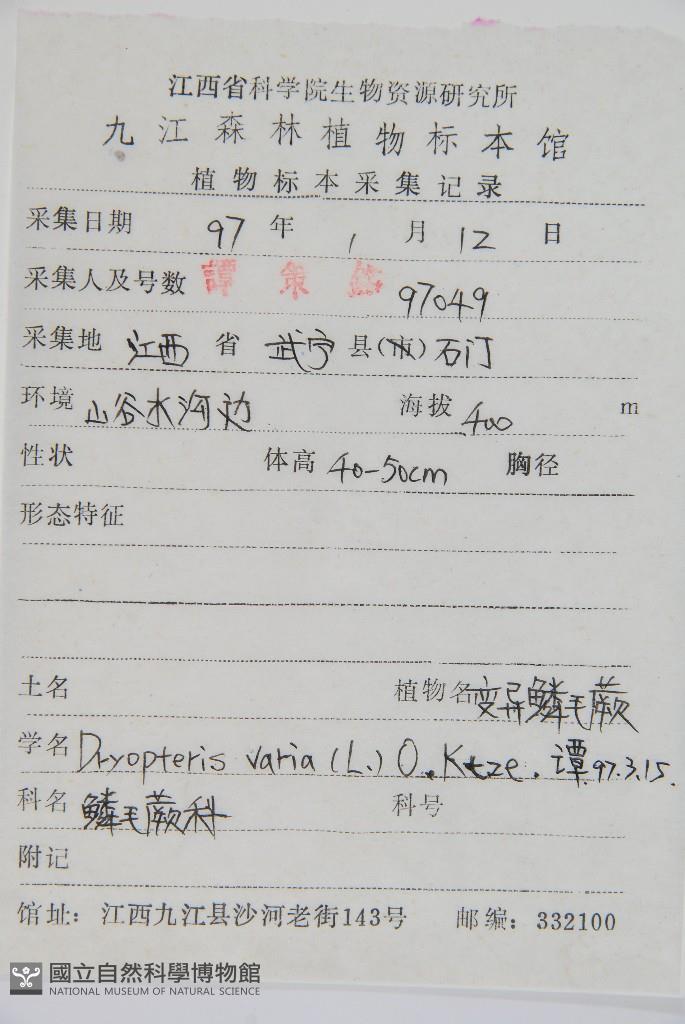 江西省科学院生物资源研究所
九江森林植物标本馆
植物标本采集记录
采集日期 97 年 1 月 12 日
采集人及号数 譚策铭 97049
采集地 江西 省 武宁 县(市)石门
环境 山谷水沟边 海拔 400 m
性状 体高 40-50cm 胸径
形态特征
土名 植物名 变异鳞毛蕨
学名 Dryopteris varia (L.) O. Ktze. 谭.97.3.15.
科名 鳞毛蕨科 科号
附记
馆址：江西九江县沙河老街143号 邮编：332100
國立自然科學博物館
NATIONAL MUSEUM OF NATURAL SCIENCE